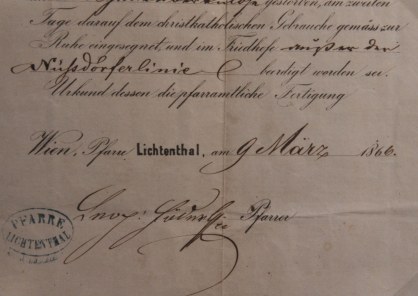 gestorben, am zweiten
Tage darauf dem christkatholischen Gebrauche gemäss zur
Ruhe eingesegnet und im Friedhofe außer der
Nußdörferlinie beerdigt worden sei.
Urkund dessen die pfarramtliche Fertigung
Wien, Pfarre Lichtenthal, am 9 März 1866.
Pfarrer
PFARRE
LICHTENTHAL